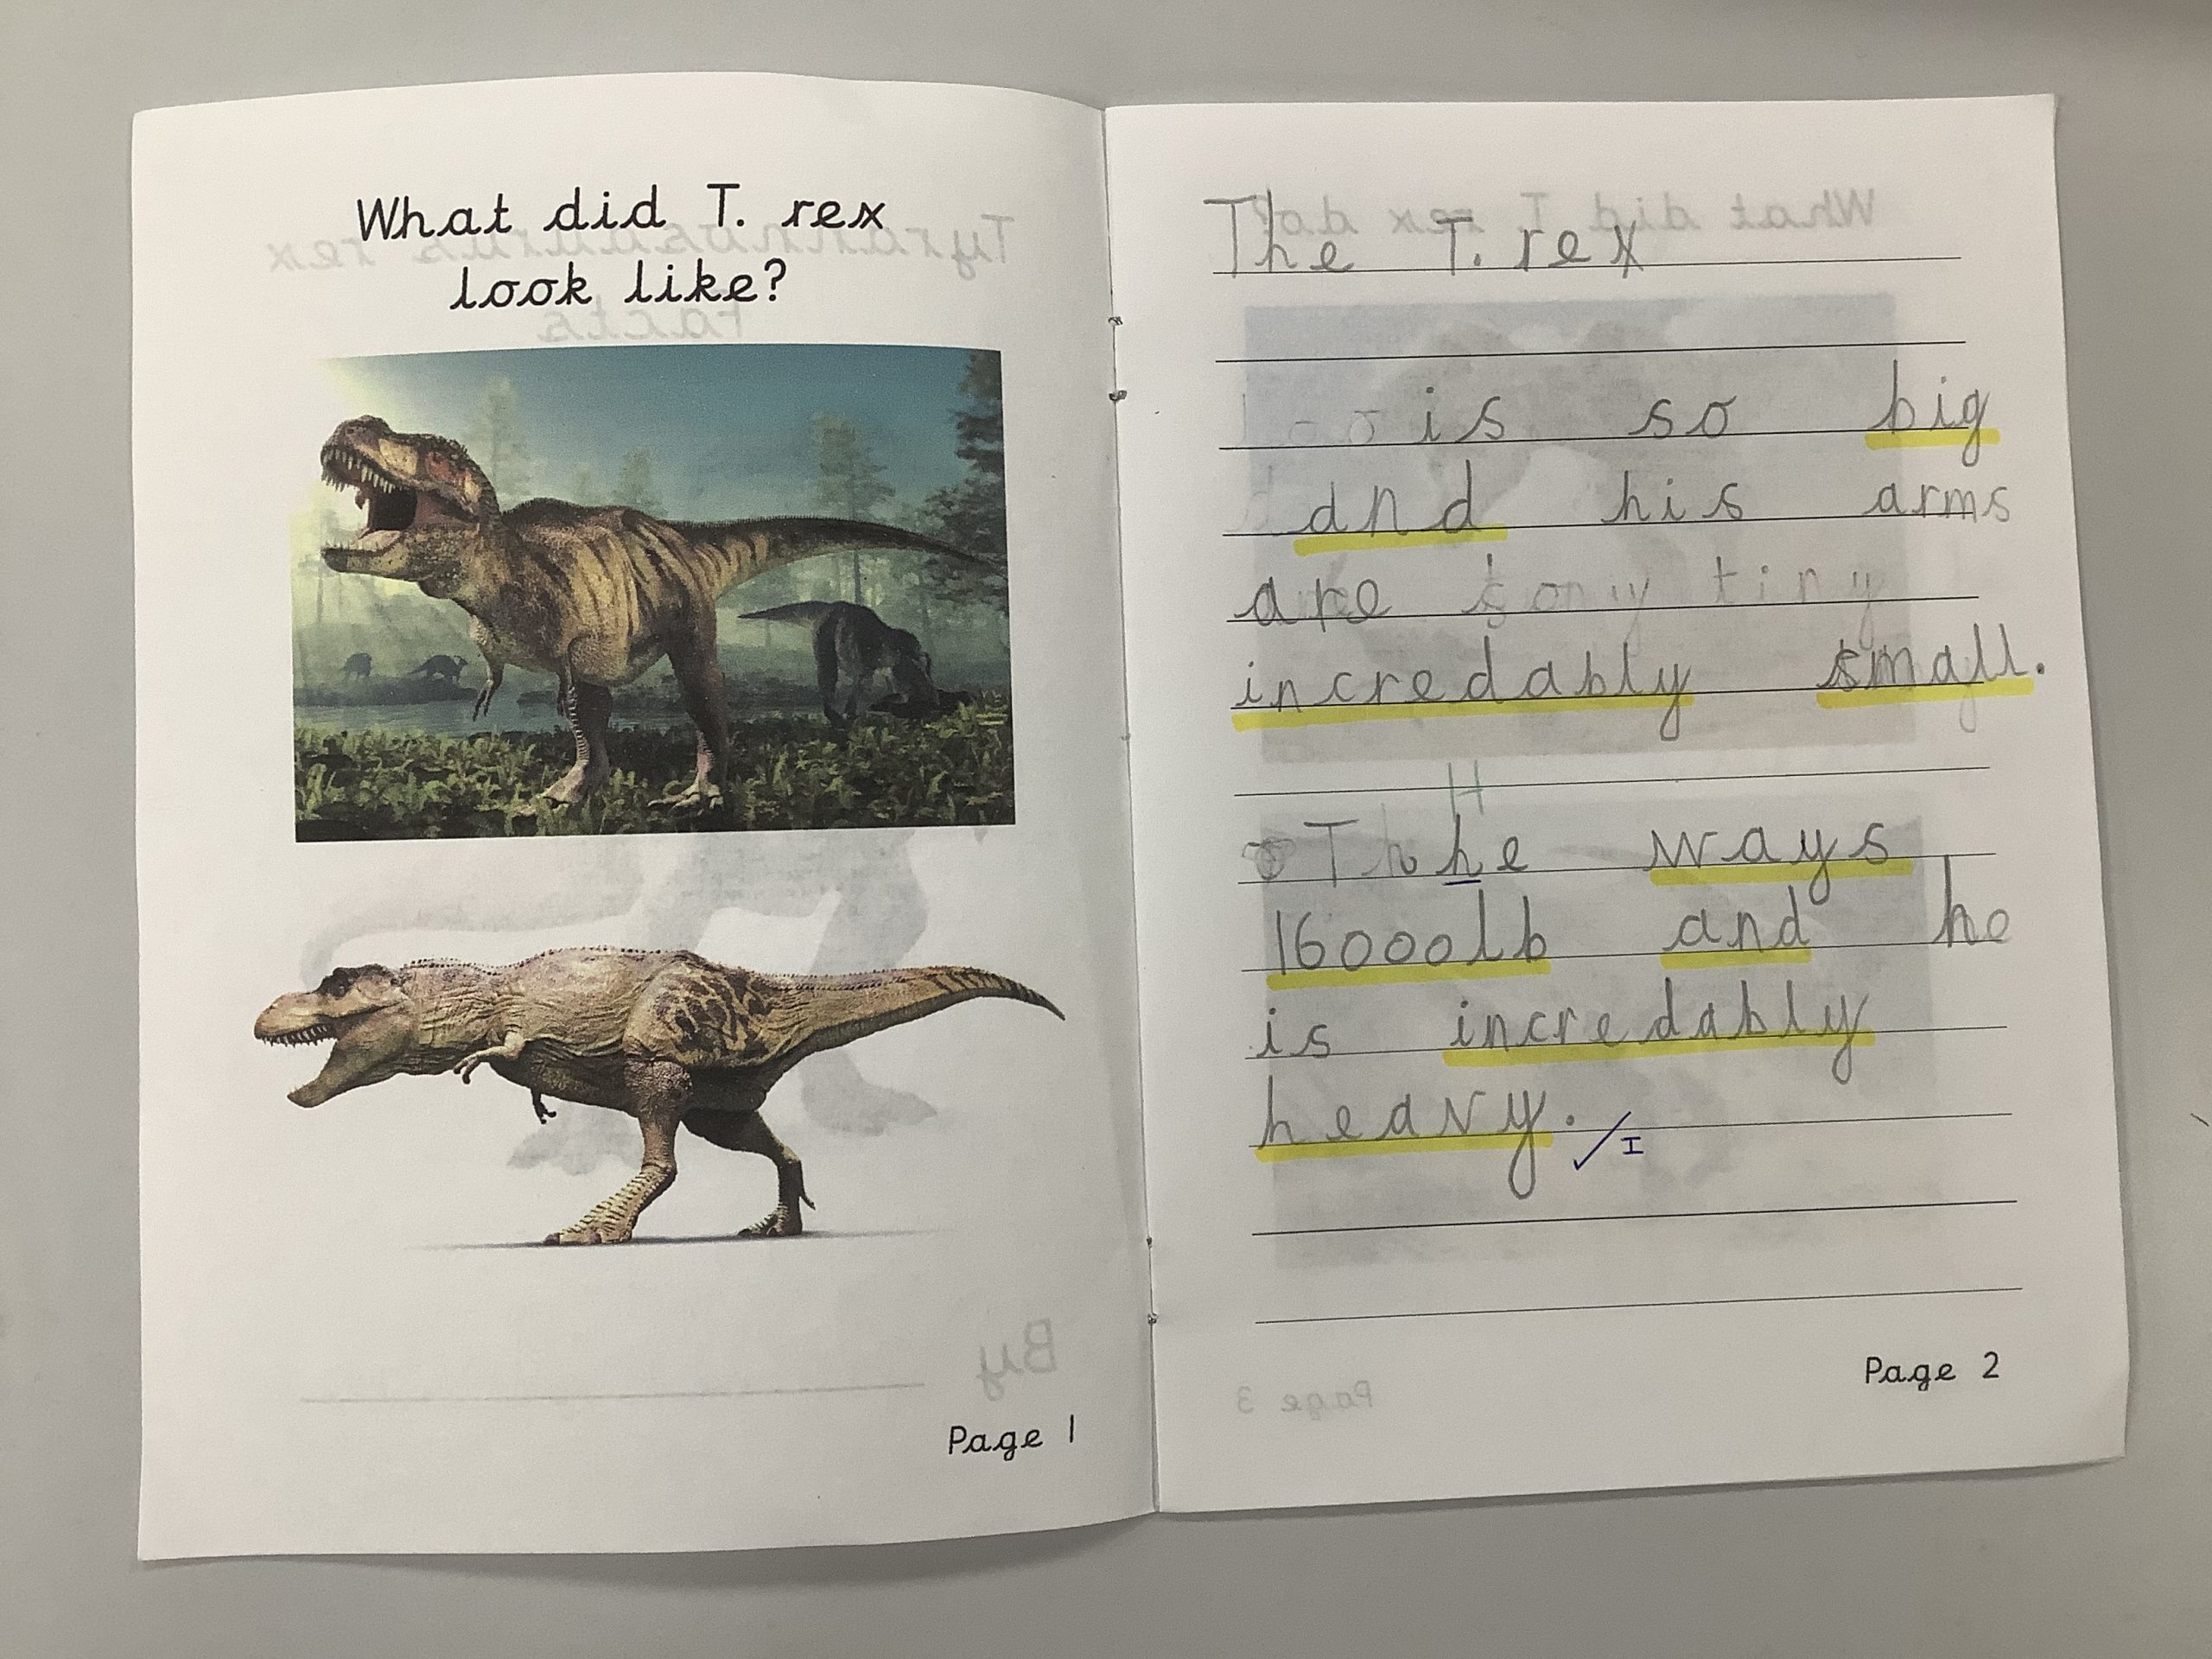 What did T. rex
look like?
Page 1
The T. rex
is so big
and his arms
are tiny
incredably small.
H
he ways
16000lb and he
is incredably
heavy.
✓ I
Page 2